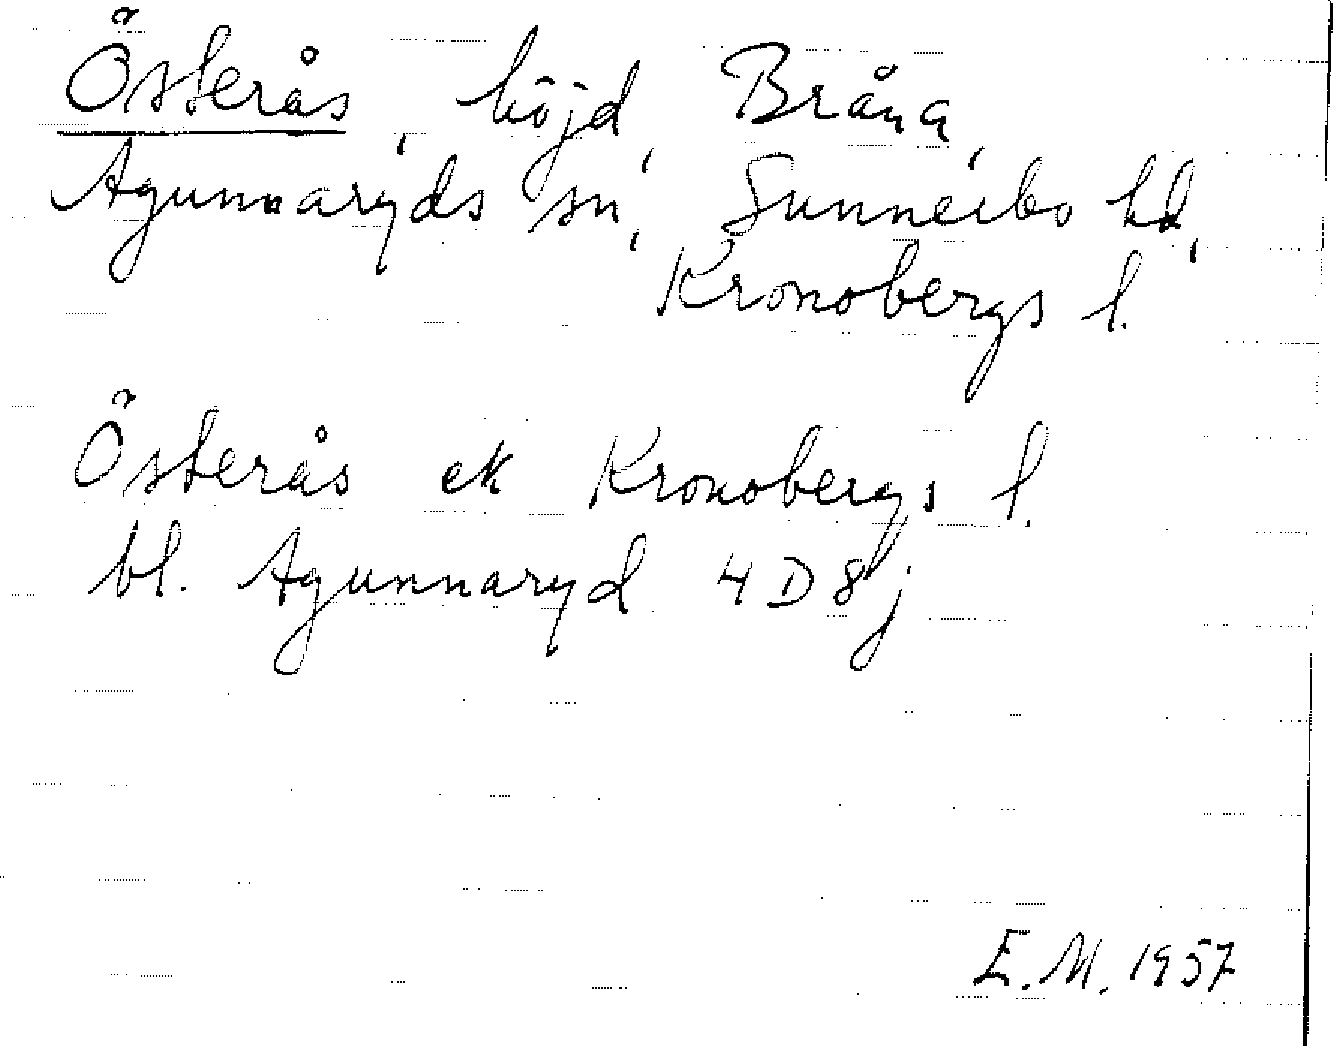 Österås, höjd, Bråna,
Agunnaryds sn, Sunnerbo hd,
Kronobergs l.
Österås ek Kronobergs l.
bl. Agunnaryd 4D8j
E.M. 1957